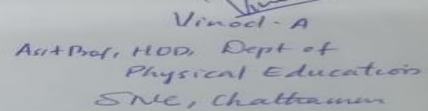 Vinod. A
Asst Prof, HOD, Dept of
Physical Education
SNC, Chathannur